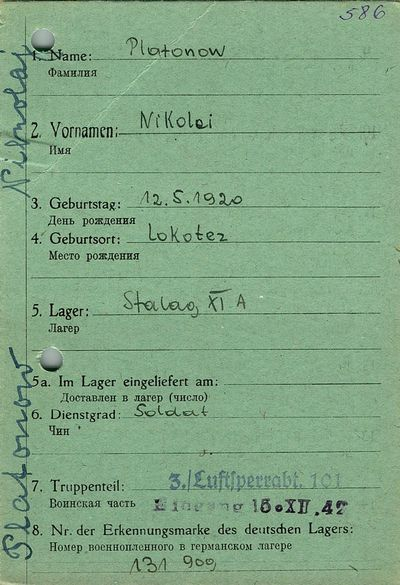 586
1. Name: Platonow
Фамилия
2. Vornamen: Nikolai
Имя
3. Geburtstag: 12.5.1920
День рождения
4. Geburtsort: Lokotez
Место рождения
5. Lager: Stalag XI A
Лагер
5a. Im Lager eingeliefert am:
Доставлен в лагер (число)
6. Dienstgrad: Soldat
Чин
7. Truppenteil: 3./Luftsperrabt. 101
Воинская часть Eingang 15.XII.42
8. Nr. der Erkennungsmarke des deutschen Lagers:
Номер военнопленного в германском лагере
131 909
Platonow Nikolaj